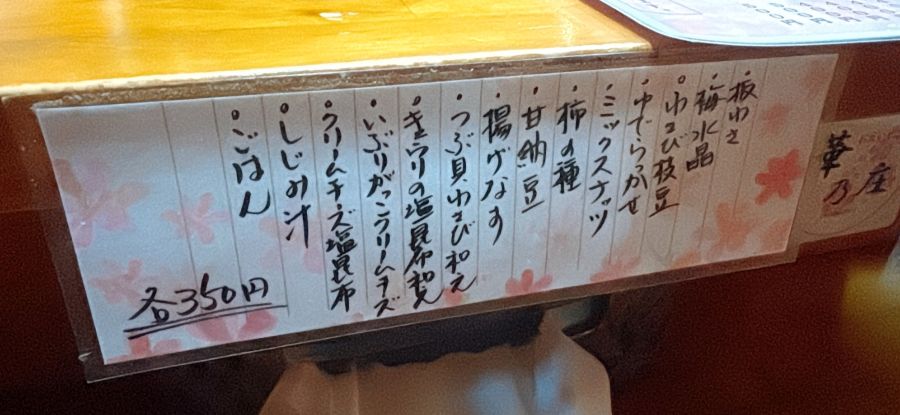 ・板わさ
・梅水晶
・わさび枝豆
・ゆでらっかせ
・ミックスナッツ
・柿の種
・甘納豆
・揚げなす
・つぶ貝わさび和え
・きゅうりの塩昆布和え
・いぶりがっこクリームチーズ
・クリームチーズ塩昆布
・しじみ汁
・ごはん
各350円
華乃
座